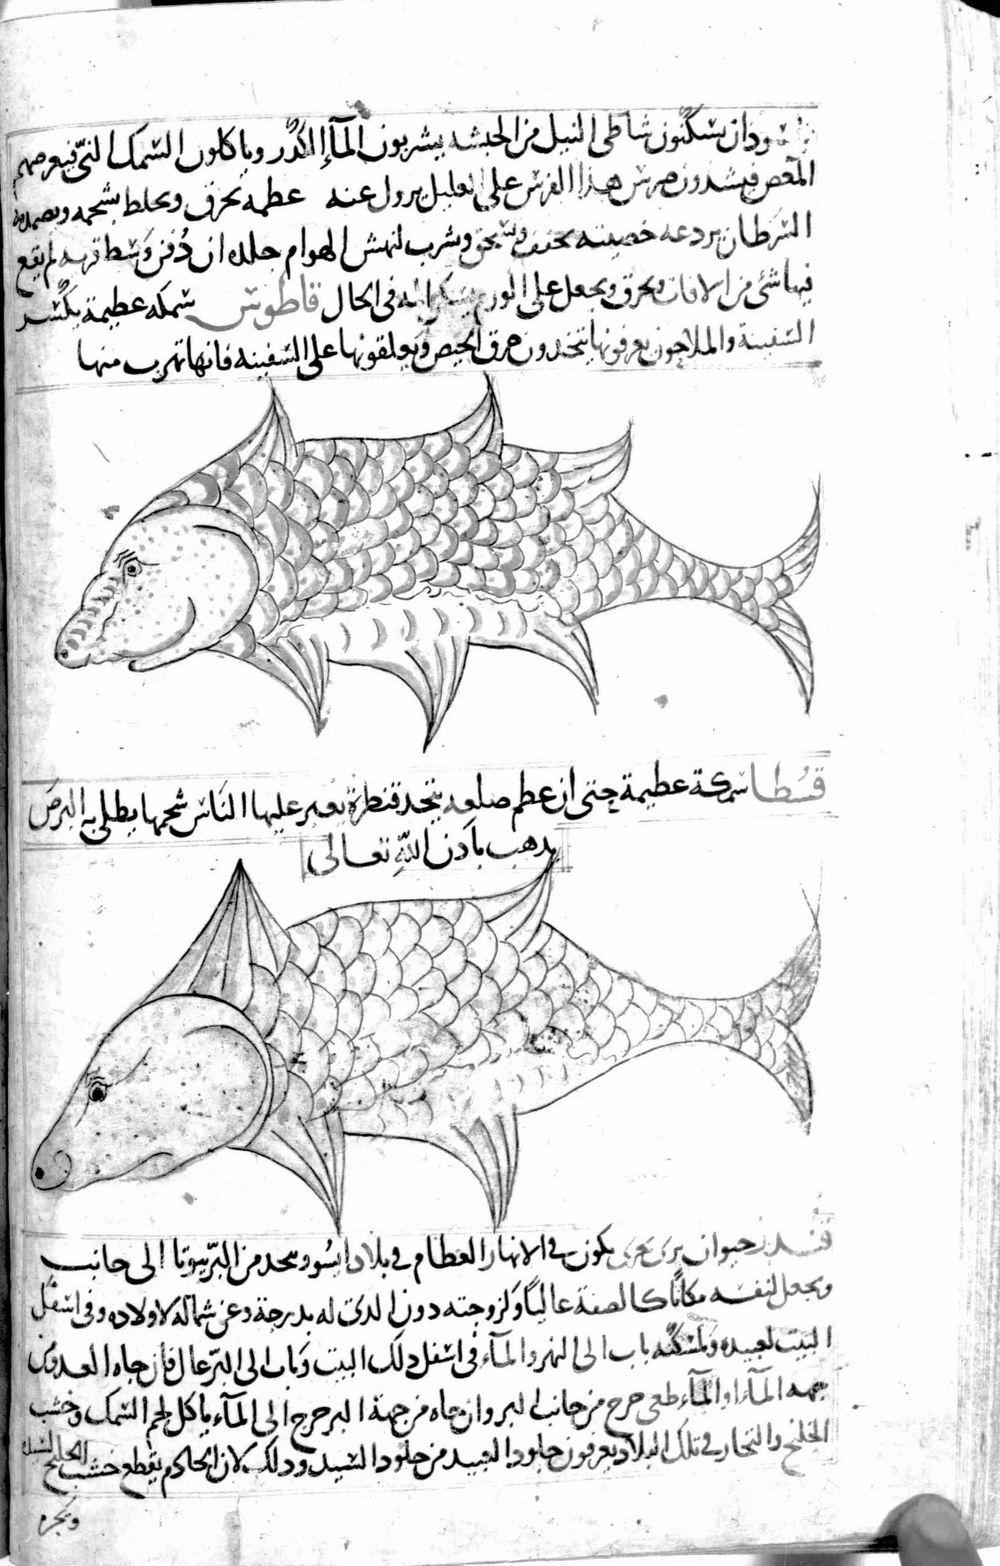 السودان يسكنون شاطى النيل من الحبشه يشربون المآء الكدر وياكلون السمك النى فيعرضهم
المغص فيشدون ضرس هذا الفرس على العليل يزول عنه عظمه يحرق ويخلط بشحمه ويضمد به
السرطان يردعه خصيته تجفف وتسحق وشرب لنهش الهوام جلده ان دفن وسط قريه لم يقع
فيها شئ من الافات ويحرق ويجعل على الورم يسكن المه فى الحال قاطوس سمكه عظيمة يكسر
السفينة والملاحون يعرفونها يتخذون خرق الحيض ويعلقونها على السفينه فانها تهرب منها
قسطا سمكة عظيمة حتى ان عظم ضلعه يتخذ قنطرة يعبر عليها الناس شحمها يطلى به البرص
يذهب باذن الله تعالى
قندر حيوان برى بحرى يكون فى الانهار العظام فى بلاد ايسو ويتخذ من البر بيوتا الى جانب
ويجعل لنفسه مكانا كالصفة عاليا ولزوجته دون الذى له بدرجة وعن شماله لاولاده وفى اسفل
البيت لعبيده ولمسكنه باب الى النهر والمآء فى اسفل ذلك البيت وباب الى البر عال فان جاه العدو من
جهه المآء او المآء طغى خرج من جانب البر وان جاه من جهة البر خرج الى المآء ياكل لحم السمك وخشب
الخلنج والتجار فى تلك البلاد يعرفون جلود العبيد من جلود السيد وذلك لان الخادم يقطع خشب الخلنج للسيد
ويجره